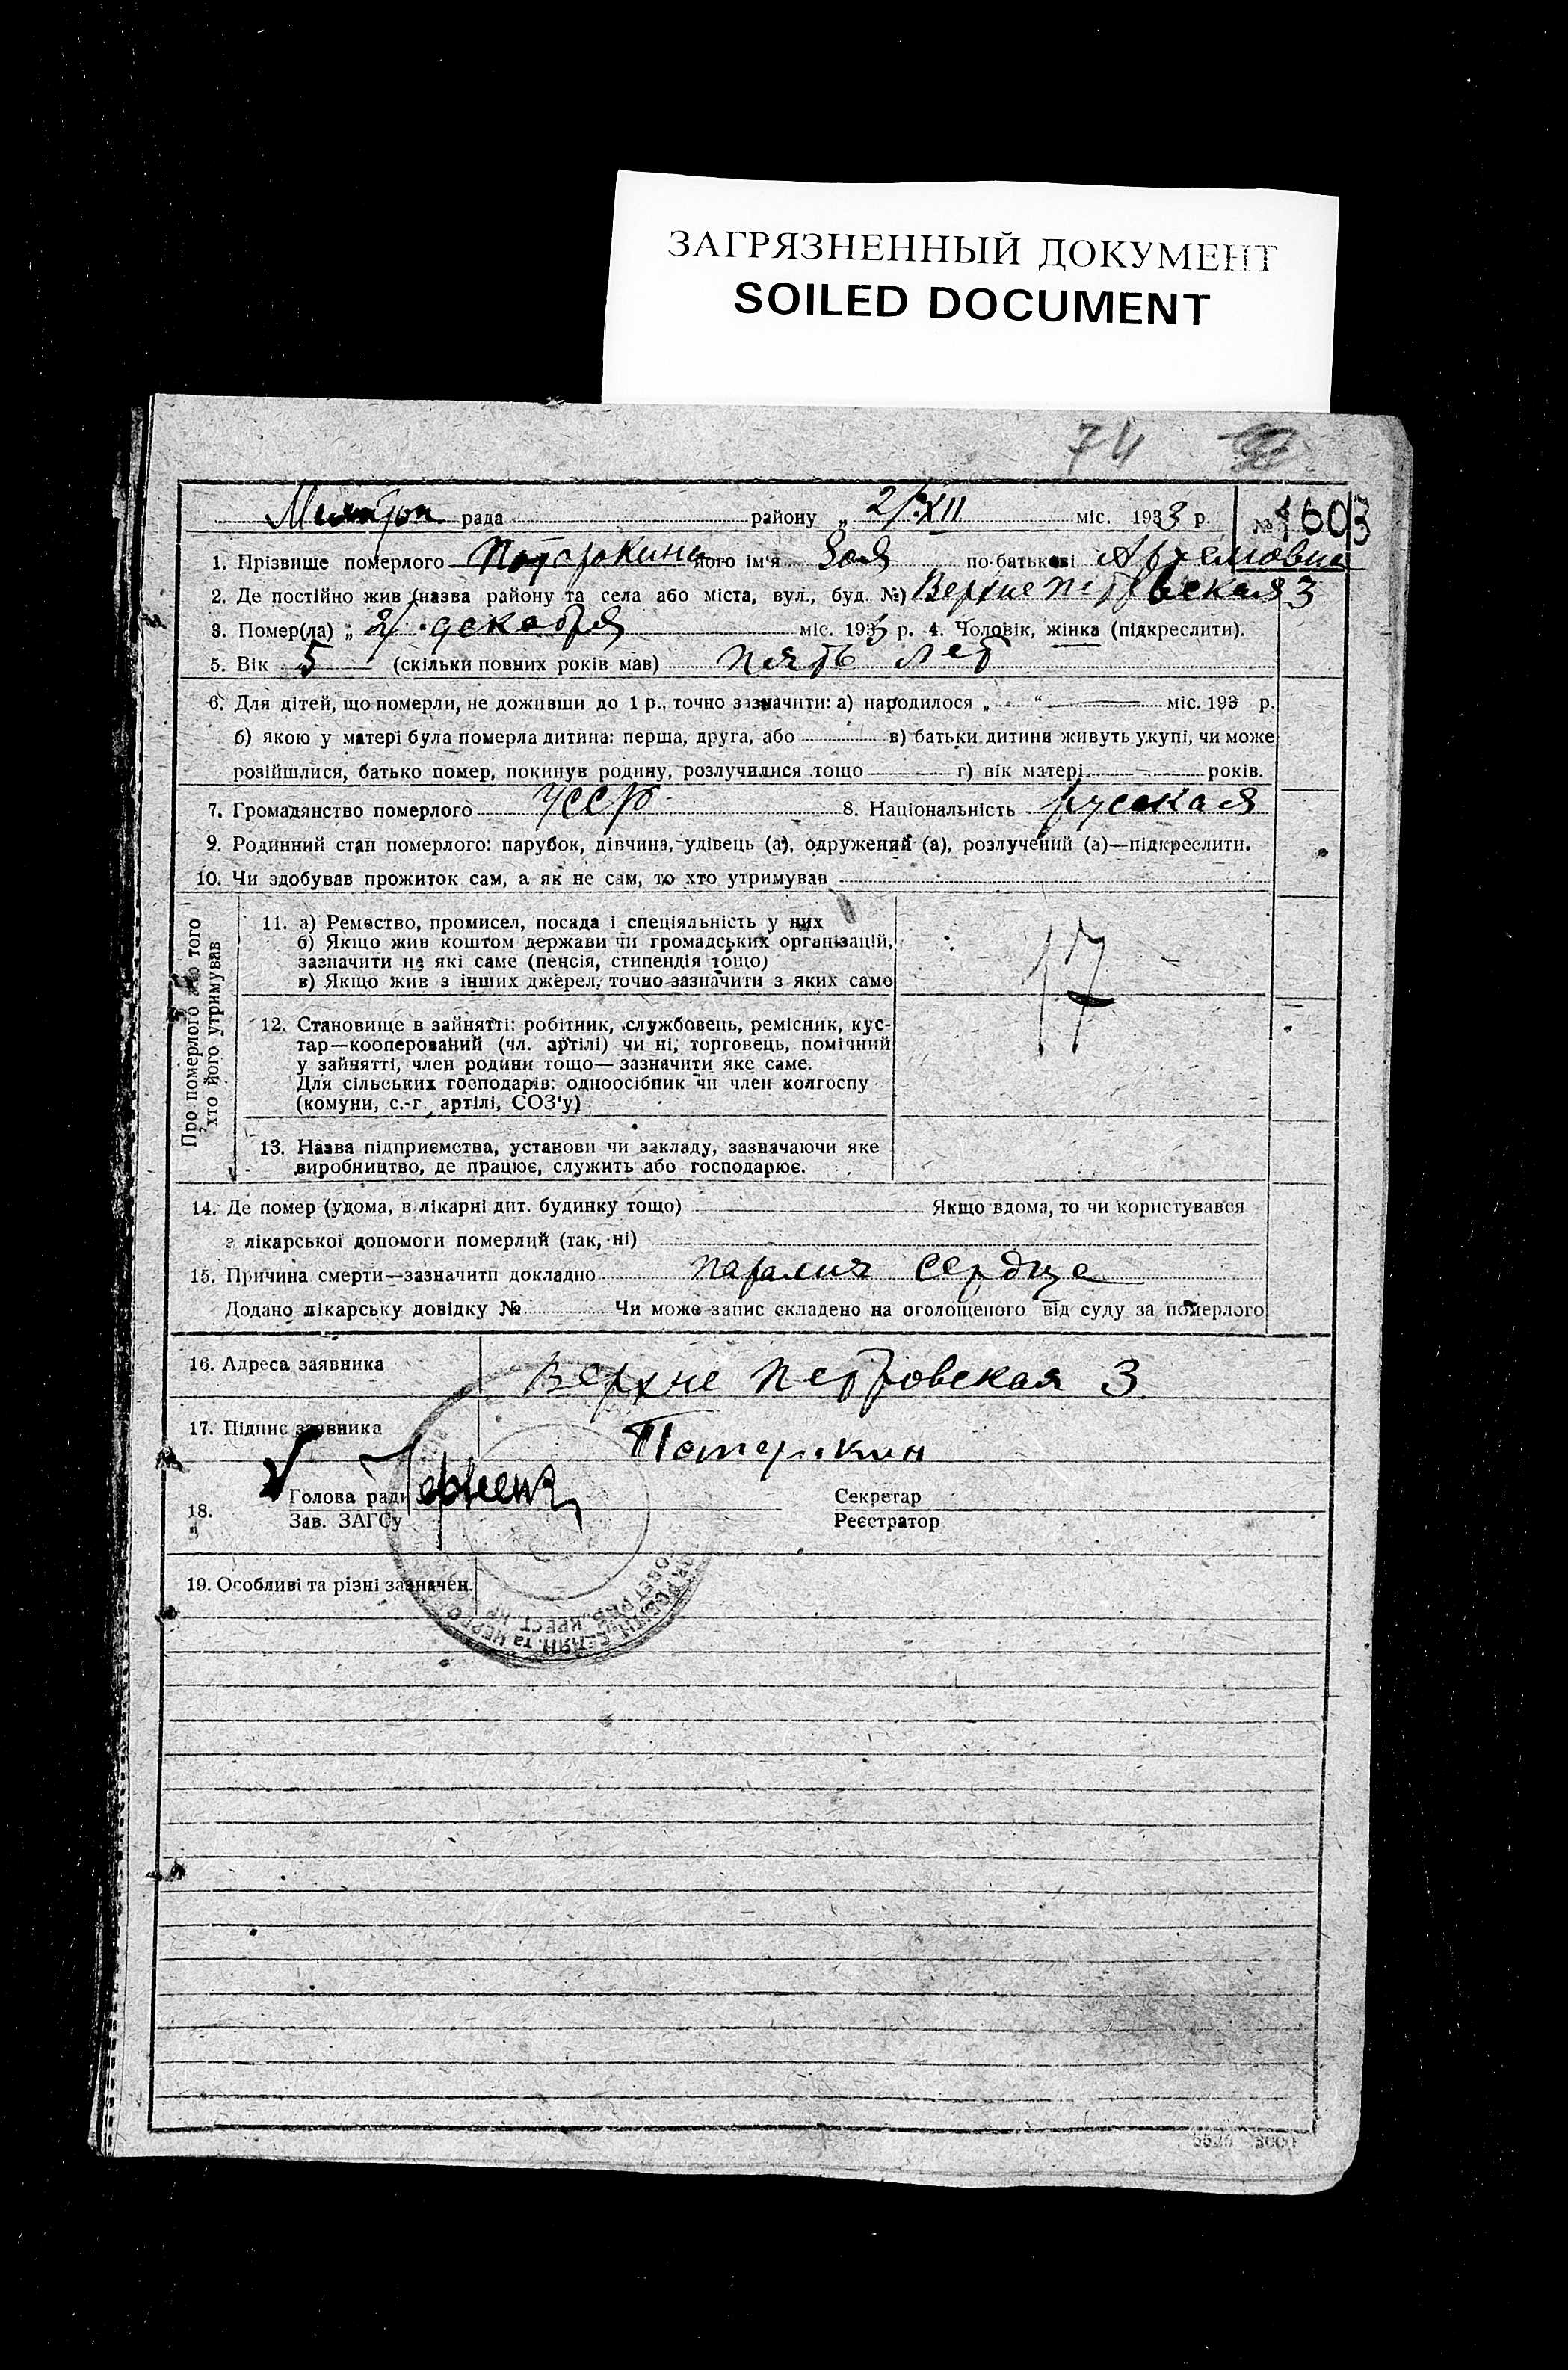 ЗАГРЯЗНЕННЫЙ ДОКУМЕНТ
SOILED DOCUMENT
74
рада району „ 21/XII міс. 1933 р. № 1603
1. Прізвище померлого його ім'я Зоя по-батькові Артемовна
2. Де постійно жив (назва району та села або міста, вул., буд. №) Верхне Петровская 3
3. Помер(ла) „ 21 декабря міс. 1933 р. 4. Чоловік, жінка (підкреслити).
5. Вік 5 (скільки повних років мав) пять лет
6. Для дітей, що померли, не доживши до 1 р., точно зазначити: а) народилося „ “ міс. 193 р.
б) якою у матері була померла дитина: перша, друга, або в) батьки дитини живуть укупі, чи може
розійшлися, батько помер, покинув родину, розлучилися тощо г) вік матері років.
7. Громадянство померлого УССР 8. Національність русская
9. Родинний стан померлого: парубок, дівчина, удівець (а), одружений (а), розлучений (а)—підкреслити.
10. Чи здобував прожиток сам, а як не сам, то хто утримував
Про померлого або того
хто його утримував
11. а) Ремество, промисел, посада і спеціяльність у них
б) Якщо жив коштом держави чи громадських організацій,
зазначити на які саме (пенсія, стипендія тощо)
в) Якщо жив з інших джерел, точно зазначити з яких саме
17
12. Становище в зайнятті: робітник, службовець, ремісник, кус-
тар—кооперований (чл. артілі) чи ні, торговець, помічний
у зайнятті, член родини тощо— зазначити яке саме.
Для сільських господарів: одноосібник чи член колгоспу
(комуни, с.-г. артілі, СОЗ'у)
13. Назва підприємства, установи чи закладу, зазначаючи яке
виробництво, де працює, служить або господарює.
14. Де помер (удома, в лікарні дит. будинку тощо) Якщо вдома, то чи користувався
з лікарської допомоги померлий (так, ні)
15. Причина смерти—зазначити докладно паралич сердца
Додано лікарську довідку № Чи може запис складено на оголошеного від суду за померлого
16. Адреса заявника Верхне Петровская 3
17. Підпис заявника Потарикин
18. Голова ради Секретар
Зав. ЗАГСу Реєстратор
19. Особливі та різні зазначен.